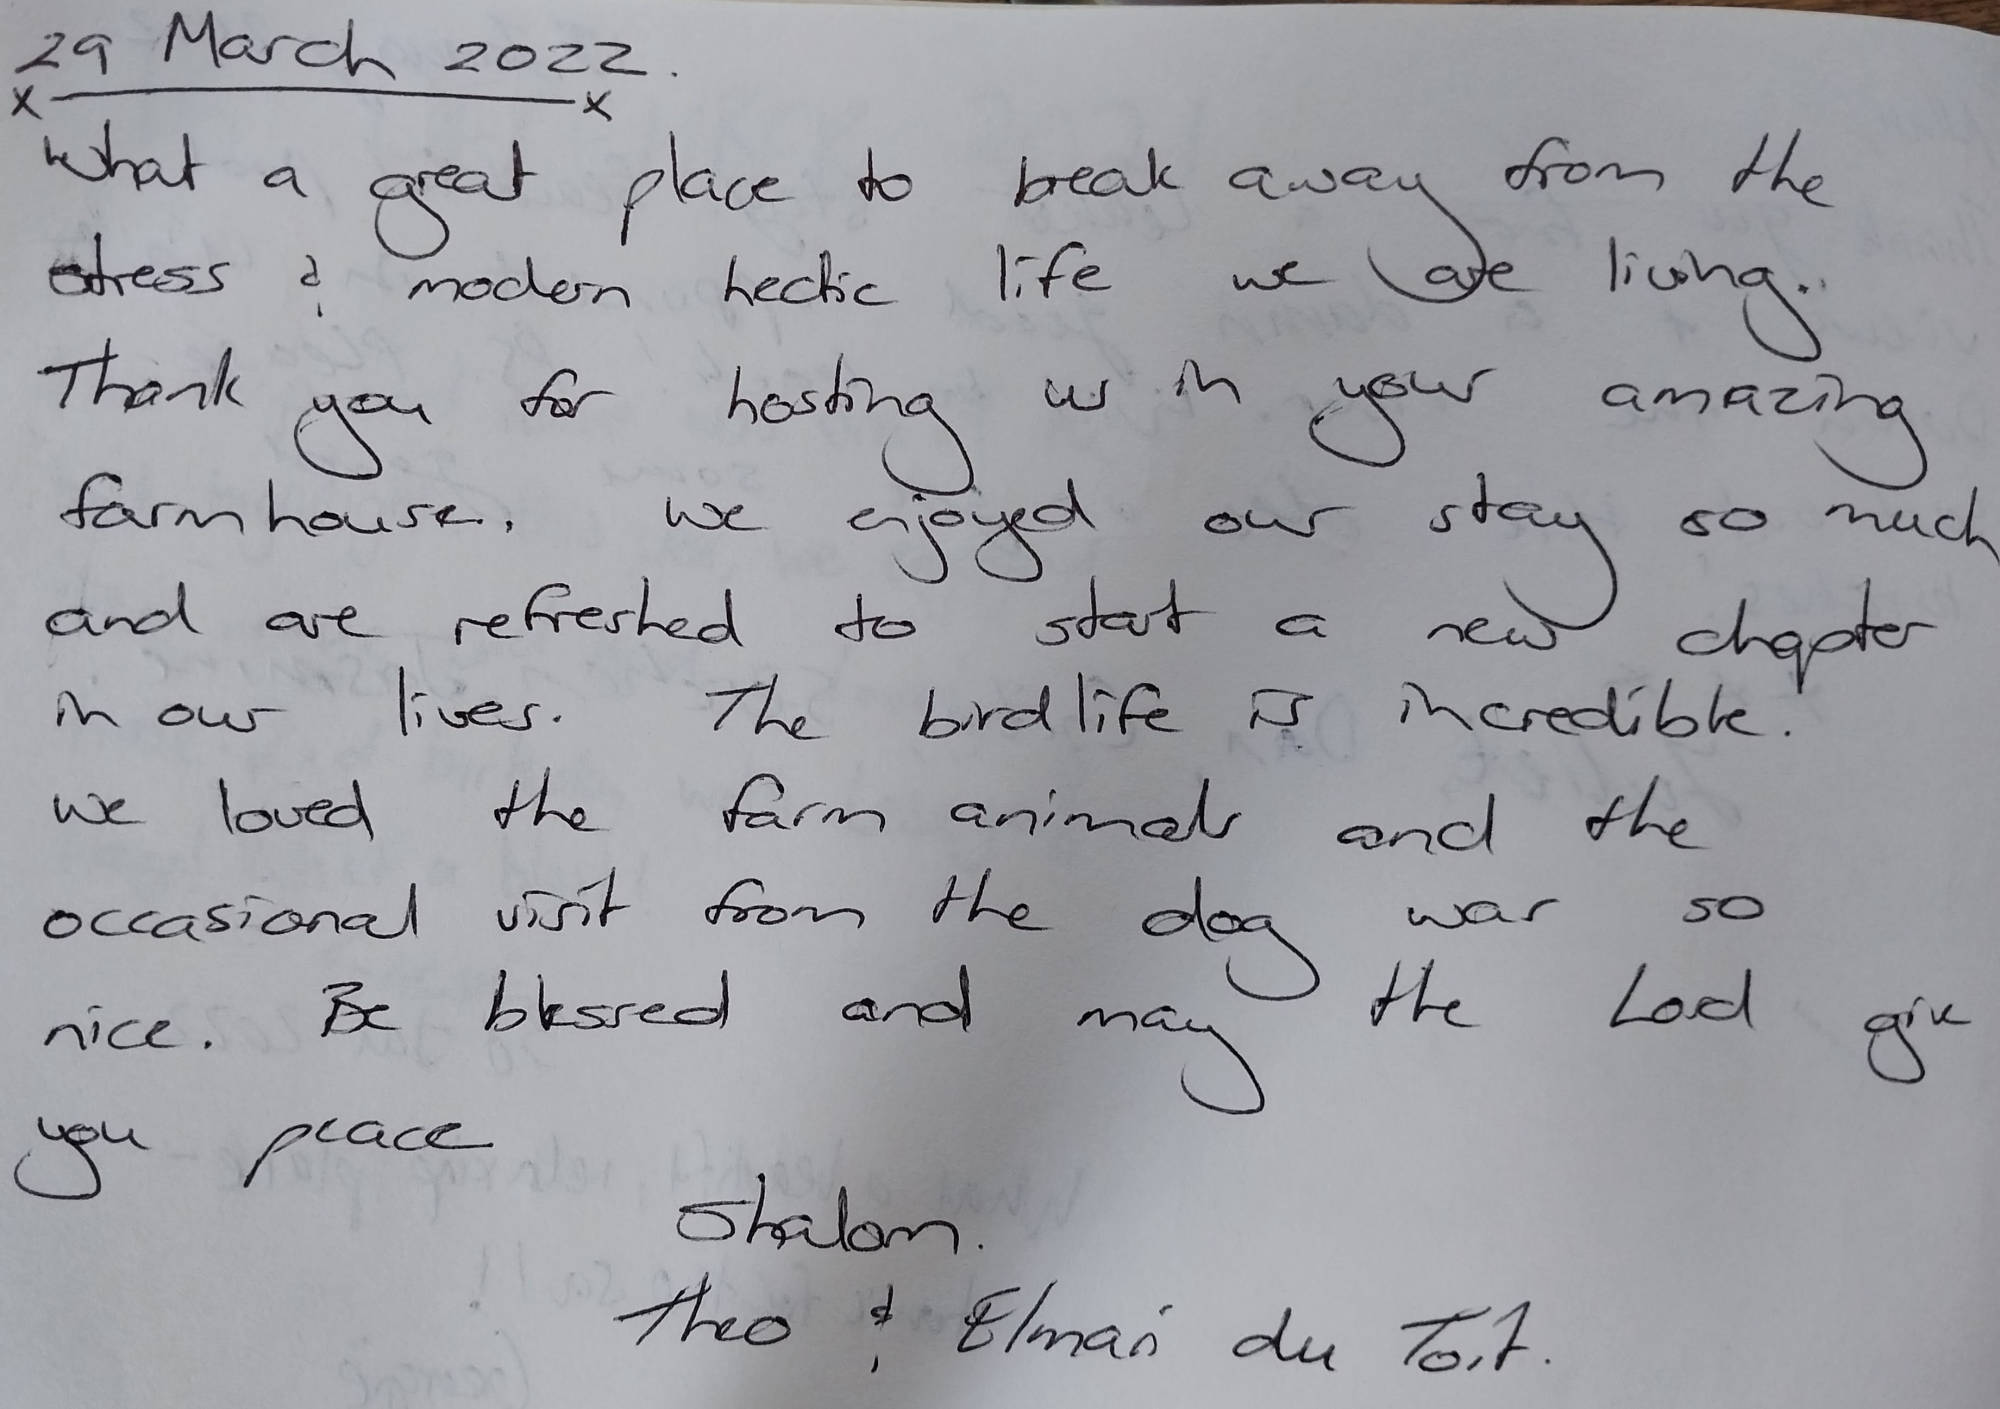 29 March 2022.
x x
What a great place to break away from the
stress & modern hectic life we are living..
Thank you for hosting us in your amazing
farmhouse. We enjoyed our stay so much
and are refreshed to start a new chapter
in our lives. The birdlife is incredible.
We loved the farm animals and the
occasional visit from the dog was so
nice. Be blessed and may the Lord give
you peace
Shalom.
Theo & Elmari du Toit.